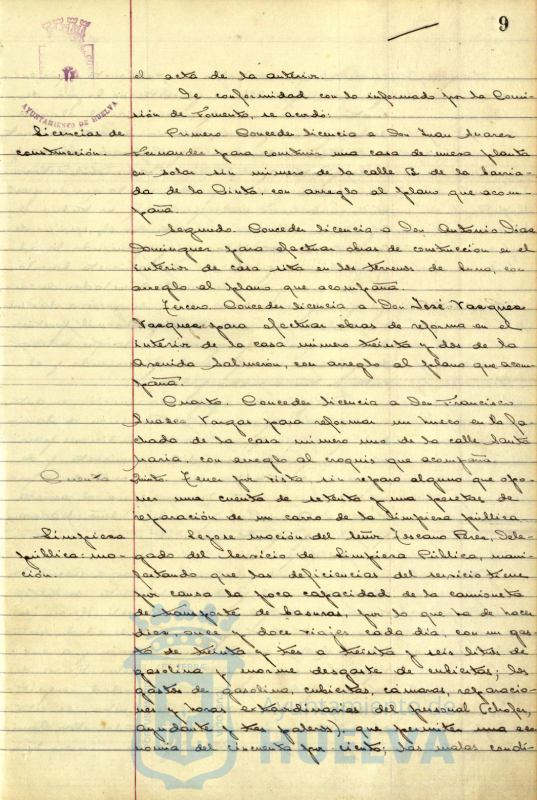 9
AYUNTAMIENTO DE HUELVA
el acta de la anterior.
De conformidad con lo informado por la Comi-
sión de Fomento, se acordó:
Licencias de
construcción.
Primero. Conceder licencia a Don Juan Suarez
Fernandez para construir una casa de nueva planta
en solar sin número de la calle B de la barria-
da de la Cinta, con arreglo al plano que acom-
paña.
Segundo. Conceder licencia a Don Antonio Diaz
Dominguez para efectuar obras de contruccion en el
interior de casa sita en los terrenos de, con
arreglo al plano que acompaña.
Tercero. Conceder licencia a Don José Vazquez
Vazquez para efectuar obras de reforma en el
interior de la casa número treinta y dos de la
Avenida Salmerón, con arreglo al plano que acom-
paña.
Cuarto. Conceder licencia a Don Francisco
Suarez Vargas para reformar un hueco en la fa-
chada de la casa número uno de la calle Santa
Maria, con arreglo al croquis que acompaña.
Cuenta
Quinto. Tener por vista sin reparo alguno que opo-
ner una cuenta de setenta y una pesetas de
reparación de un carro de la limpieza pública.
Limpieza
pública: mo-
ción.
Leyose moción del señor Toscano Perez, Dele-
gado del Servicio de Limpieza Pública, mani-
festando que las deficiencias del servicio tiene
por causa la poca capacidad de la camioneta
de transporte de basuras, por lo que ha de hacer
diez, once y doce viajes cada día, con un gas-
to de treinta y tres a treinta y seis litros de
gasolina y enorme desgaste de cubiertas; los
gastos de gasolina, cubiertas, cámaras, reparacio-
nes y horas extraordinarias del personal (chofer,
ayudante y tres paleros), que permiten una eco-
nomia del cincuenta por ciento; las malas condi-
Ayuntamiento
HUELVA